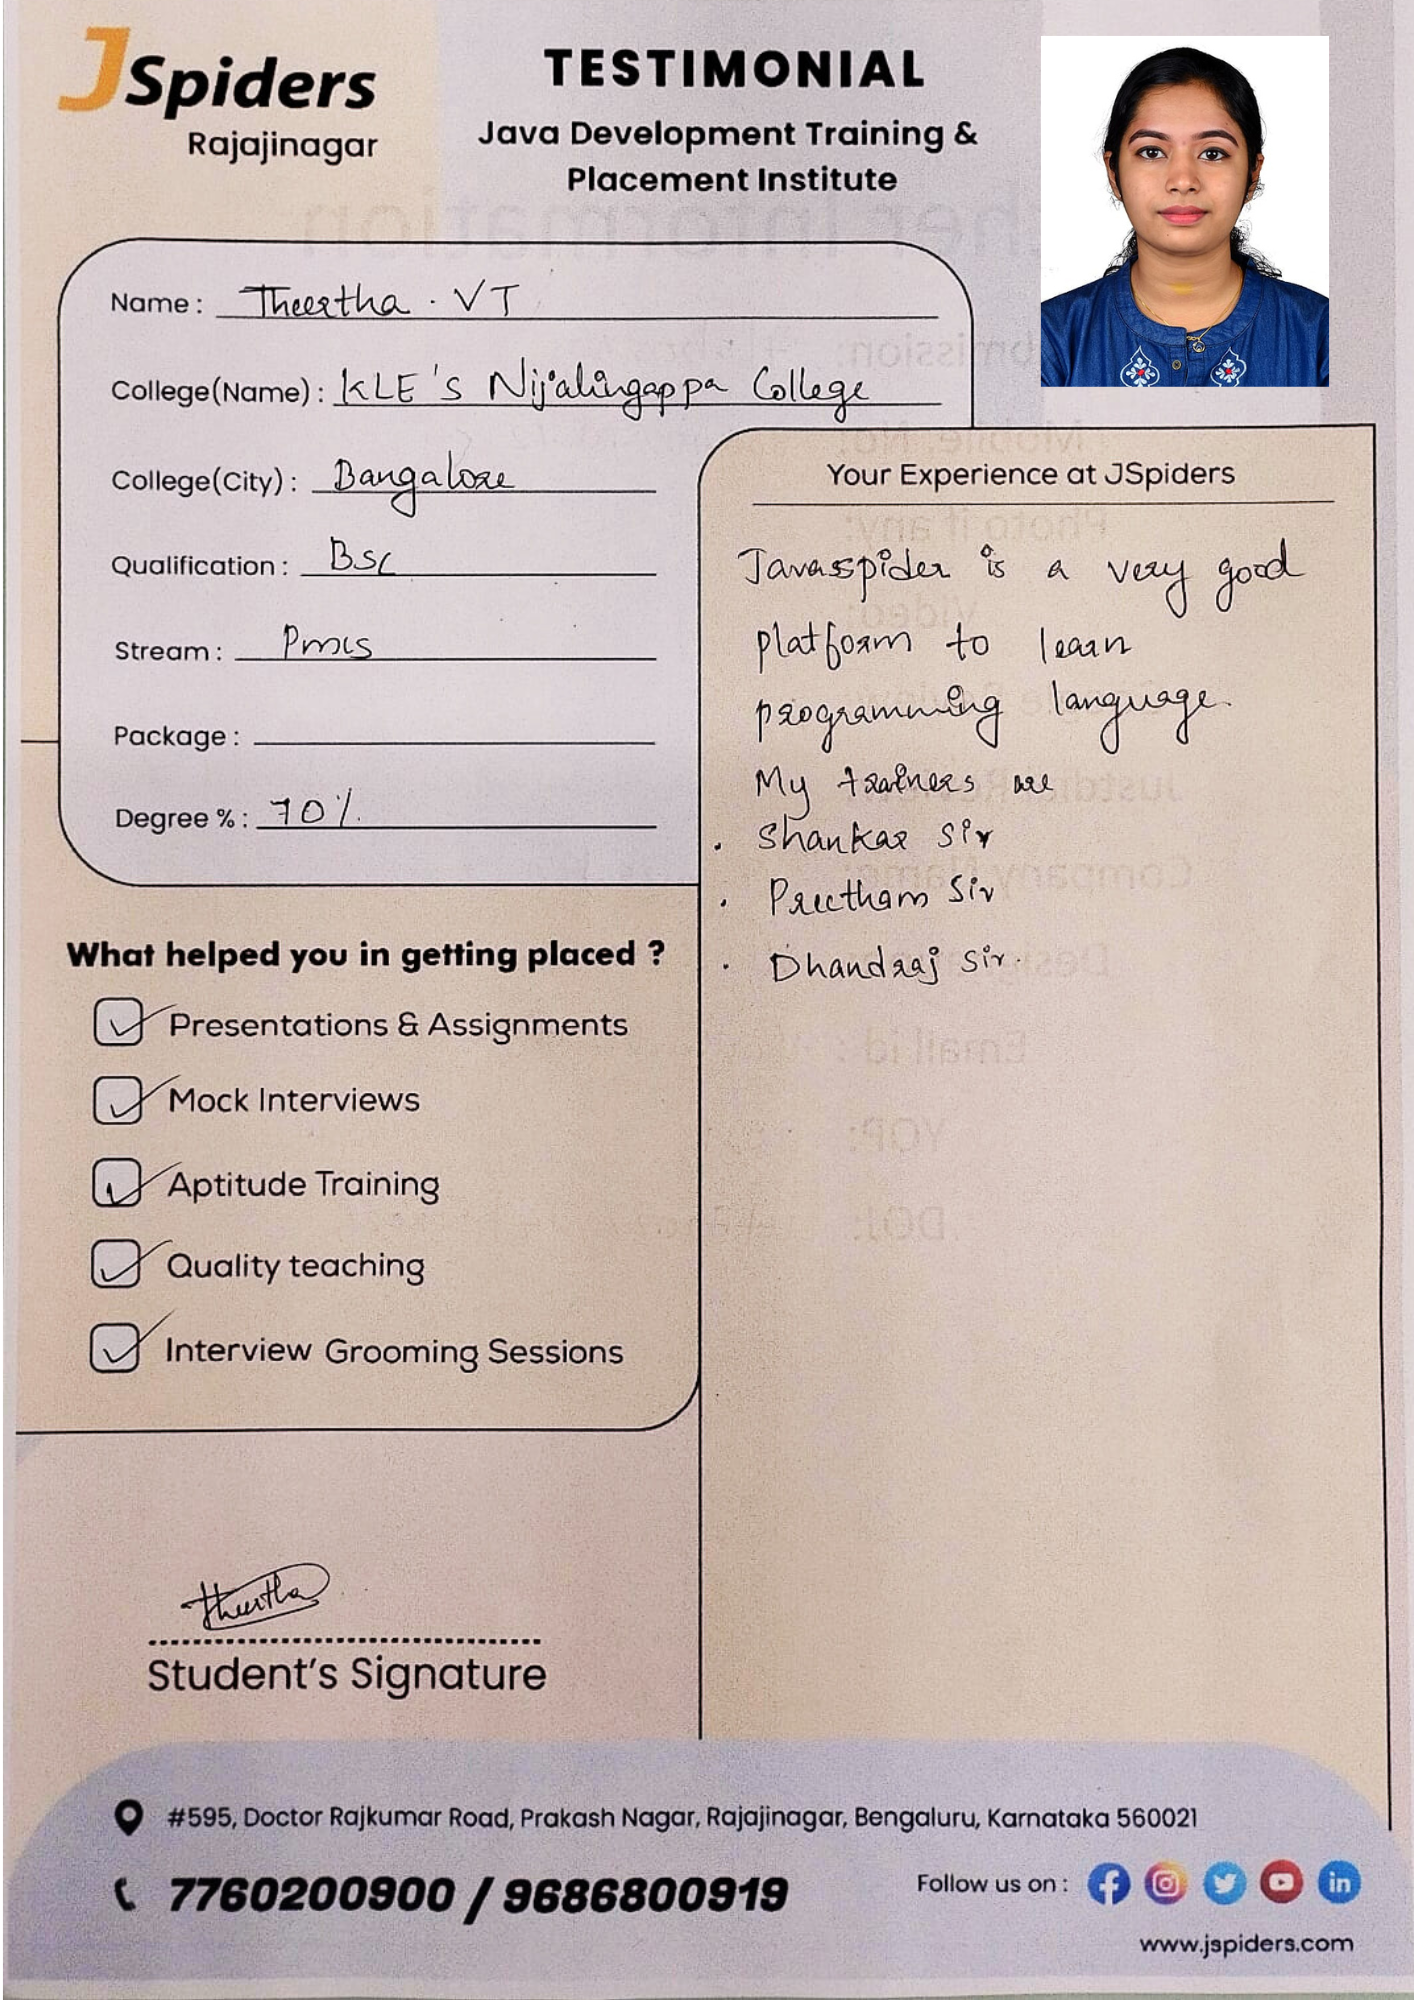 JSpiders
Rajajinagar
TESTIMONIAL
Java Development Training &
Placement Institute
Name : Theertha . VT
College(Name) : KLE's Nijalingappa College
College(City) : Bangalore
Qualification : BSc
Stream : Pmcs
Package :
Degree % : 70%.
What helped you in getting placed ?
Presentations & Assignments
Mock Interviews
Aptitude Training
Quality teaching
Interview Grooming Sessions
Theertha
Student's Signature
Your Experience at JSpiders
Javaspider is a very good
platform to learn
programming language.
My trainers are
. Shankar Sir
. Preetham Sir
. Dhandraj Sir.
#595, Doctor Rajkumar Road, Prakash Nagar, Rajajinagar, Bengaluru, Karnataka 560021
7760200900 / 9686800919
Follow us on :
www.jspiders.com